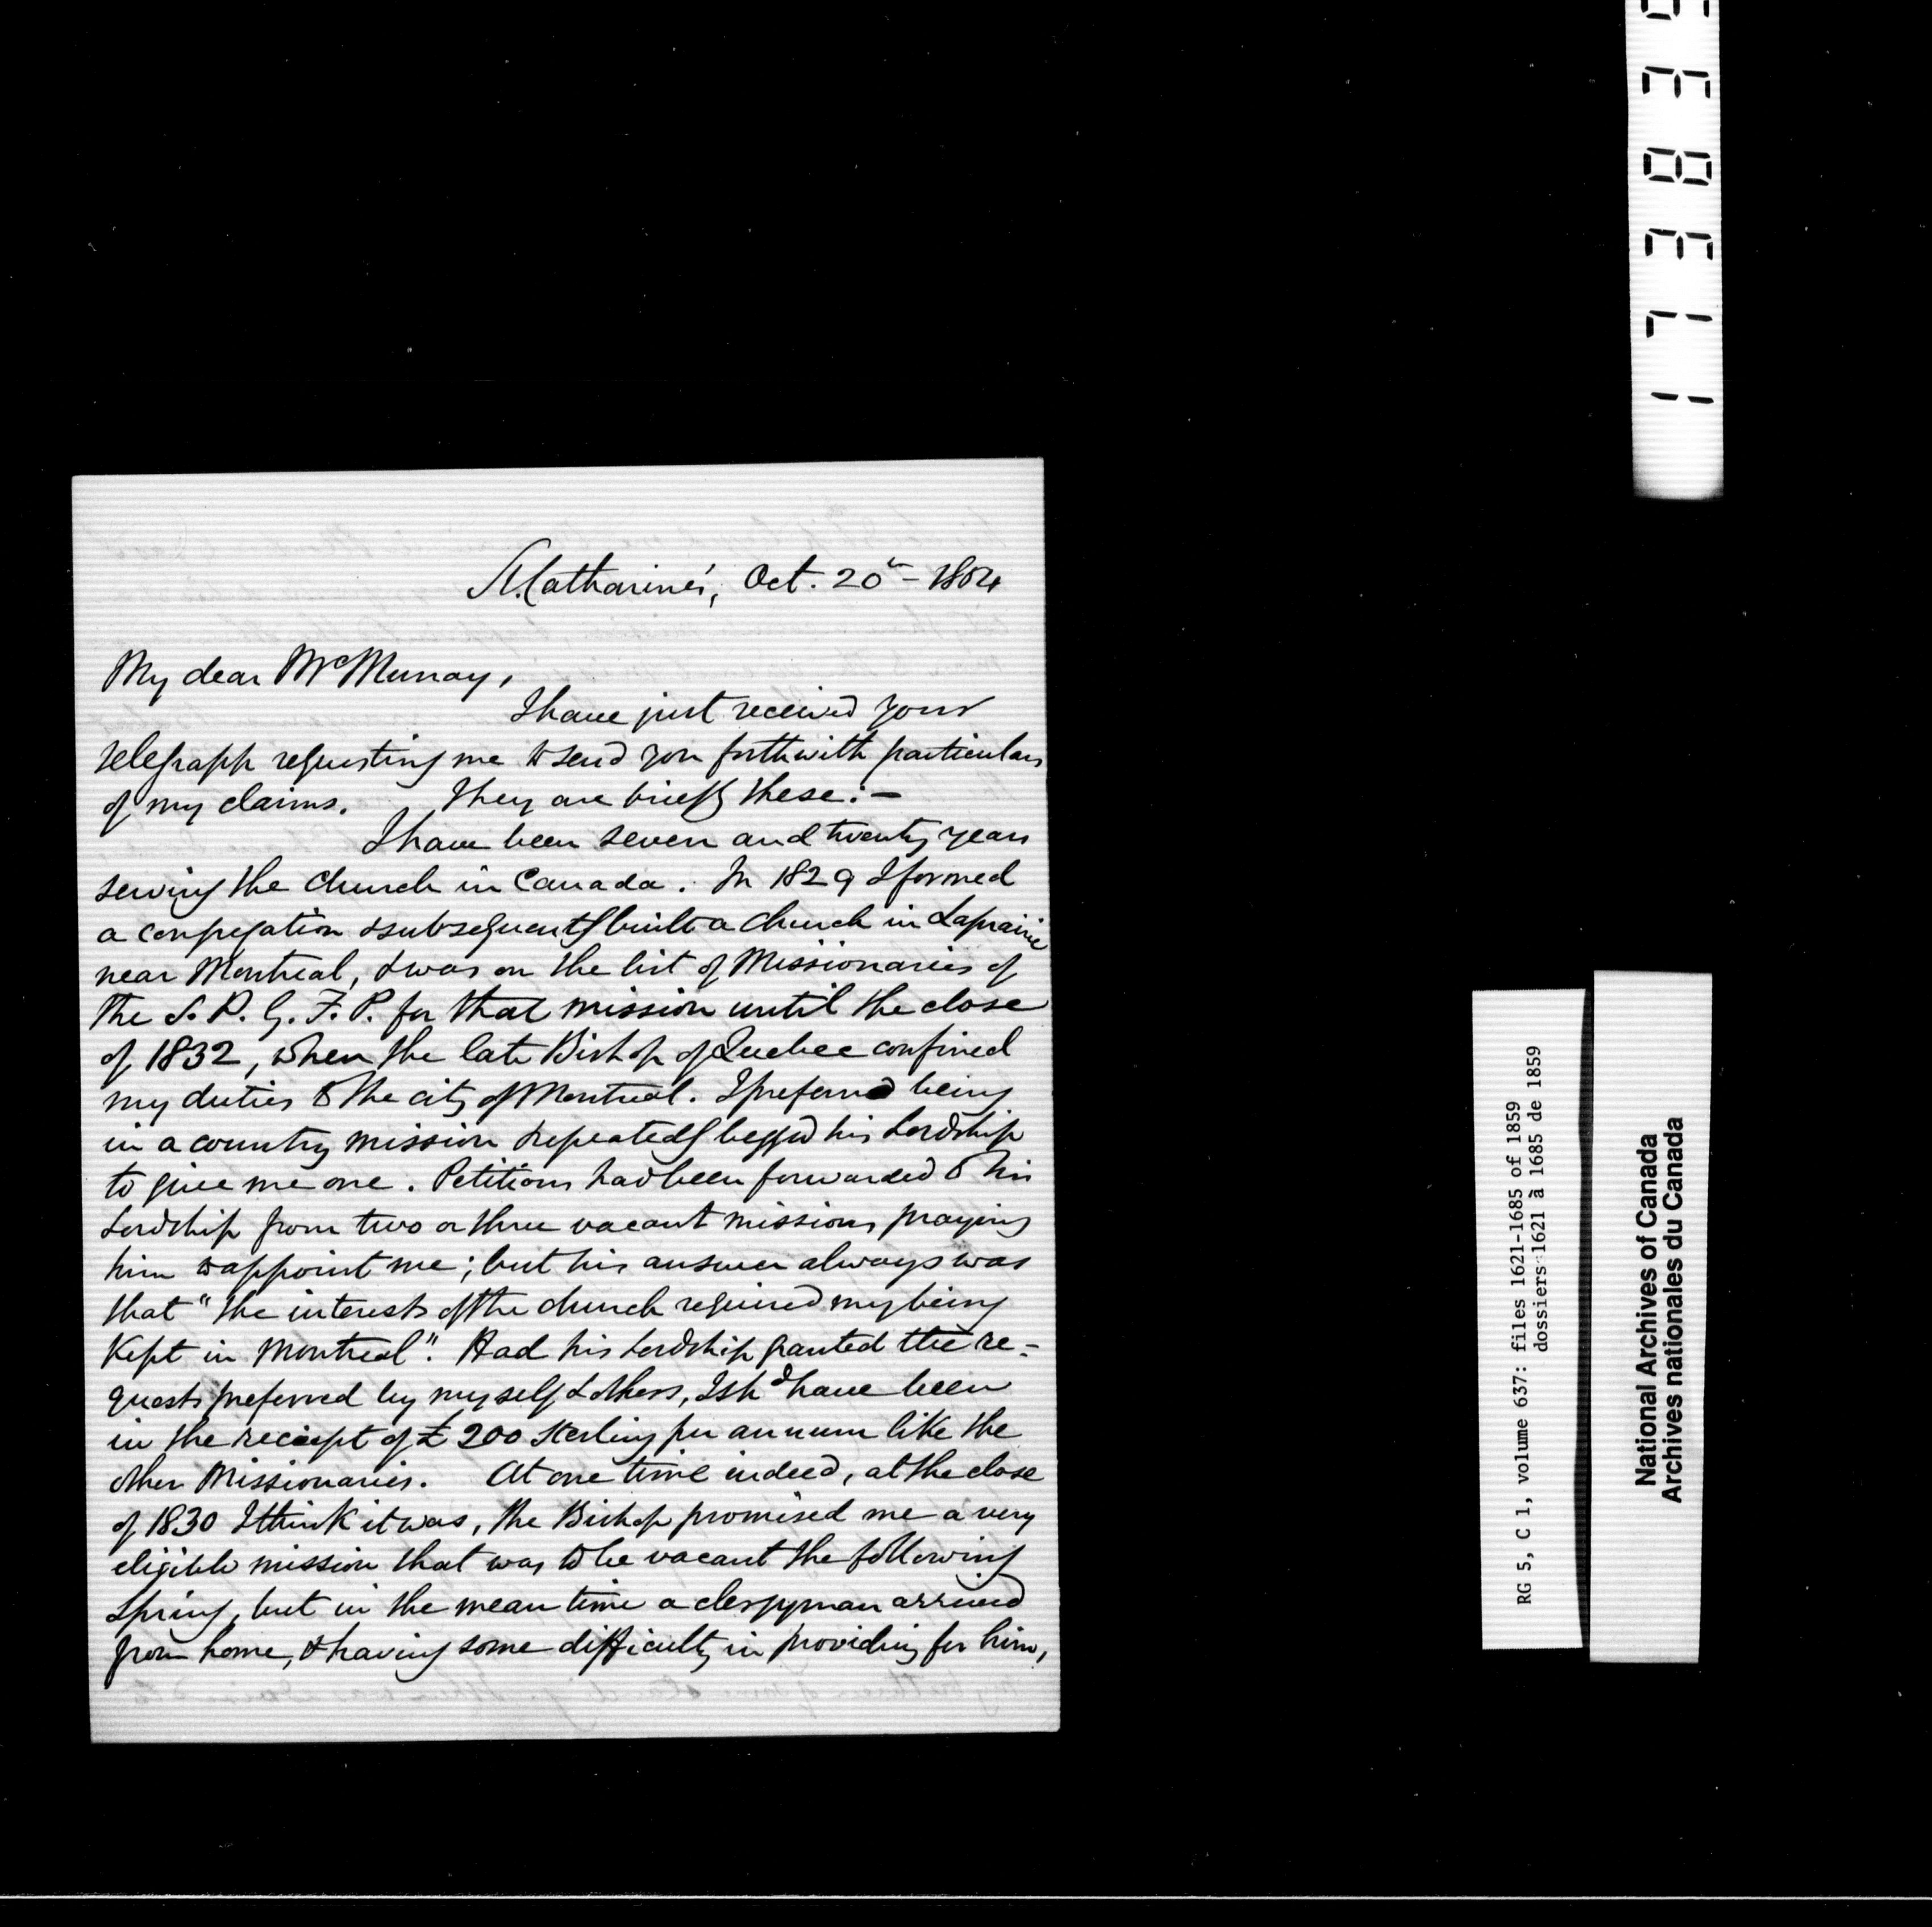 St. Catharine's, Oct. 20th - 1854
My dear McMurray,
I have just received your
telegraph requesting me to send you forthwith particulars
of my claims. They are briefly these:—
I have been seven and twenty years
serving the church in Canada. In 1829 I formed
a congregation & subsequently built a church in Laprairie
near Montreal, & was on the list of Missionaries of
the S. P. G. F. P. for that mission until the close
of 1832, when the late Bishop of Quebec confined
my duties to the city of Montreal. I preferred being
in a country mission & repeatedly begged his Lordship
to give me one. Petitions had been forwarded to his
Lordship from two or three vacant missions praying
him to appoint me; but his answer always was
that "the interests of the church required my being
kept in Montreal". Had his Lordship granted the re=
quests preferred by myself & others, I shd have been
in the receipt of £200 sterling per annum like the
other Missionaries. At one time indeed, at the close
of 1830 I think it was, the Bishop promised me a very
eligible mission that was to be vacant the following
Spring, but in the mean time a clergyman arrived
from home, & having some difficulty in providing for him,
3 8 3 7 1
RG 5, C 1, volume 637: files 1621-1685 of 1859
dossiers 1621 à 1685 de 1859
National Archives of Canada
Archives nationales du Canada